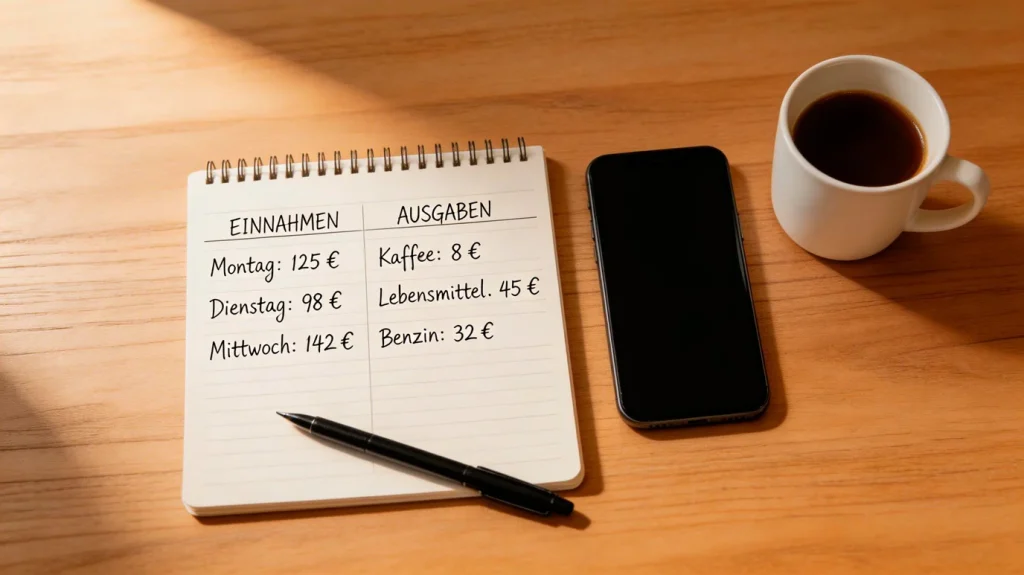 EINNAHMEN AUSGABEN
Montag: 125 € Kaffee: 8 €
Dienstag: 98 € Lebensmittel. 45 €
Mittwoch: 142 € Benzin: 32 €